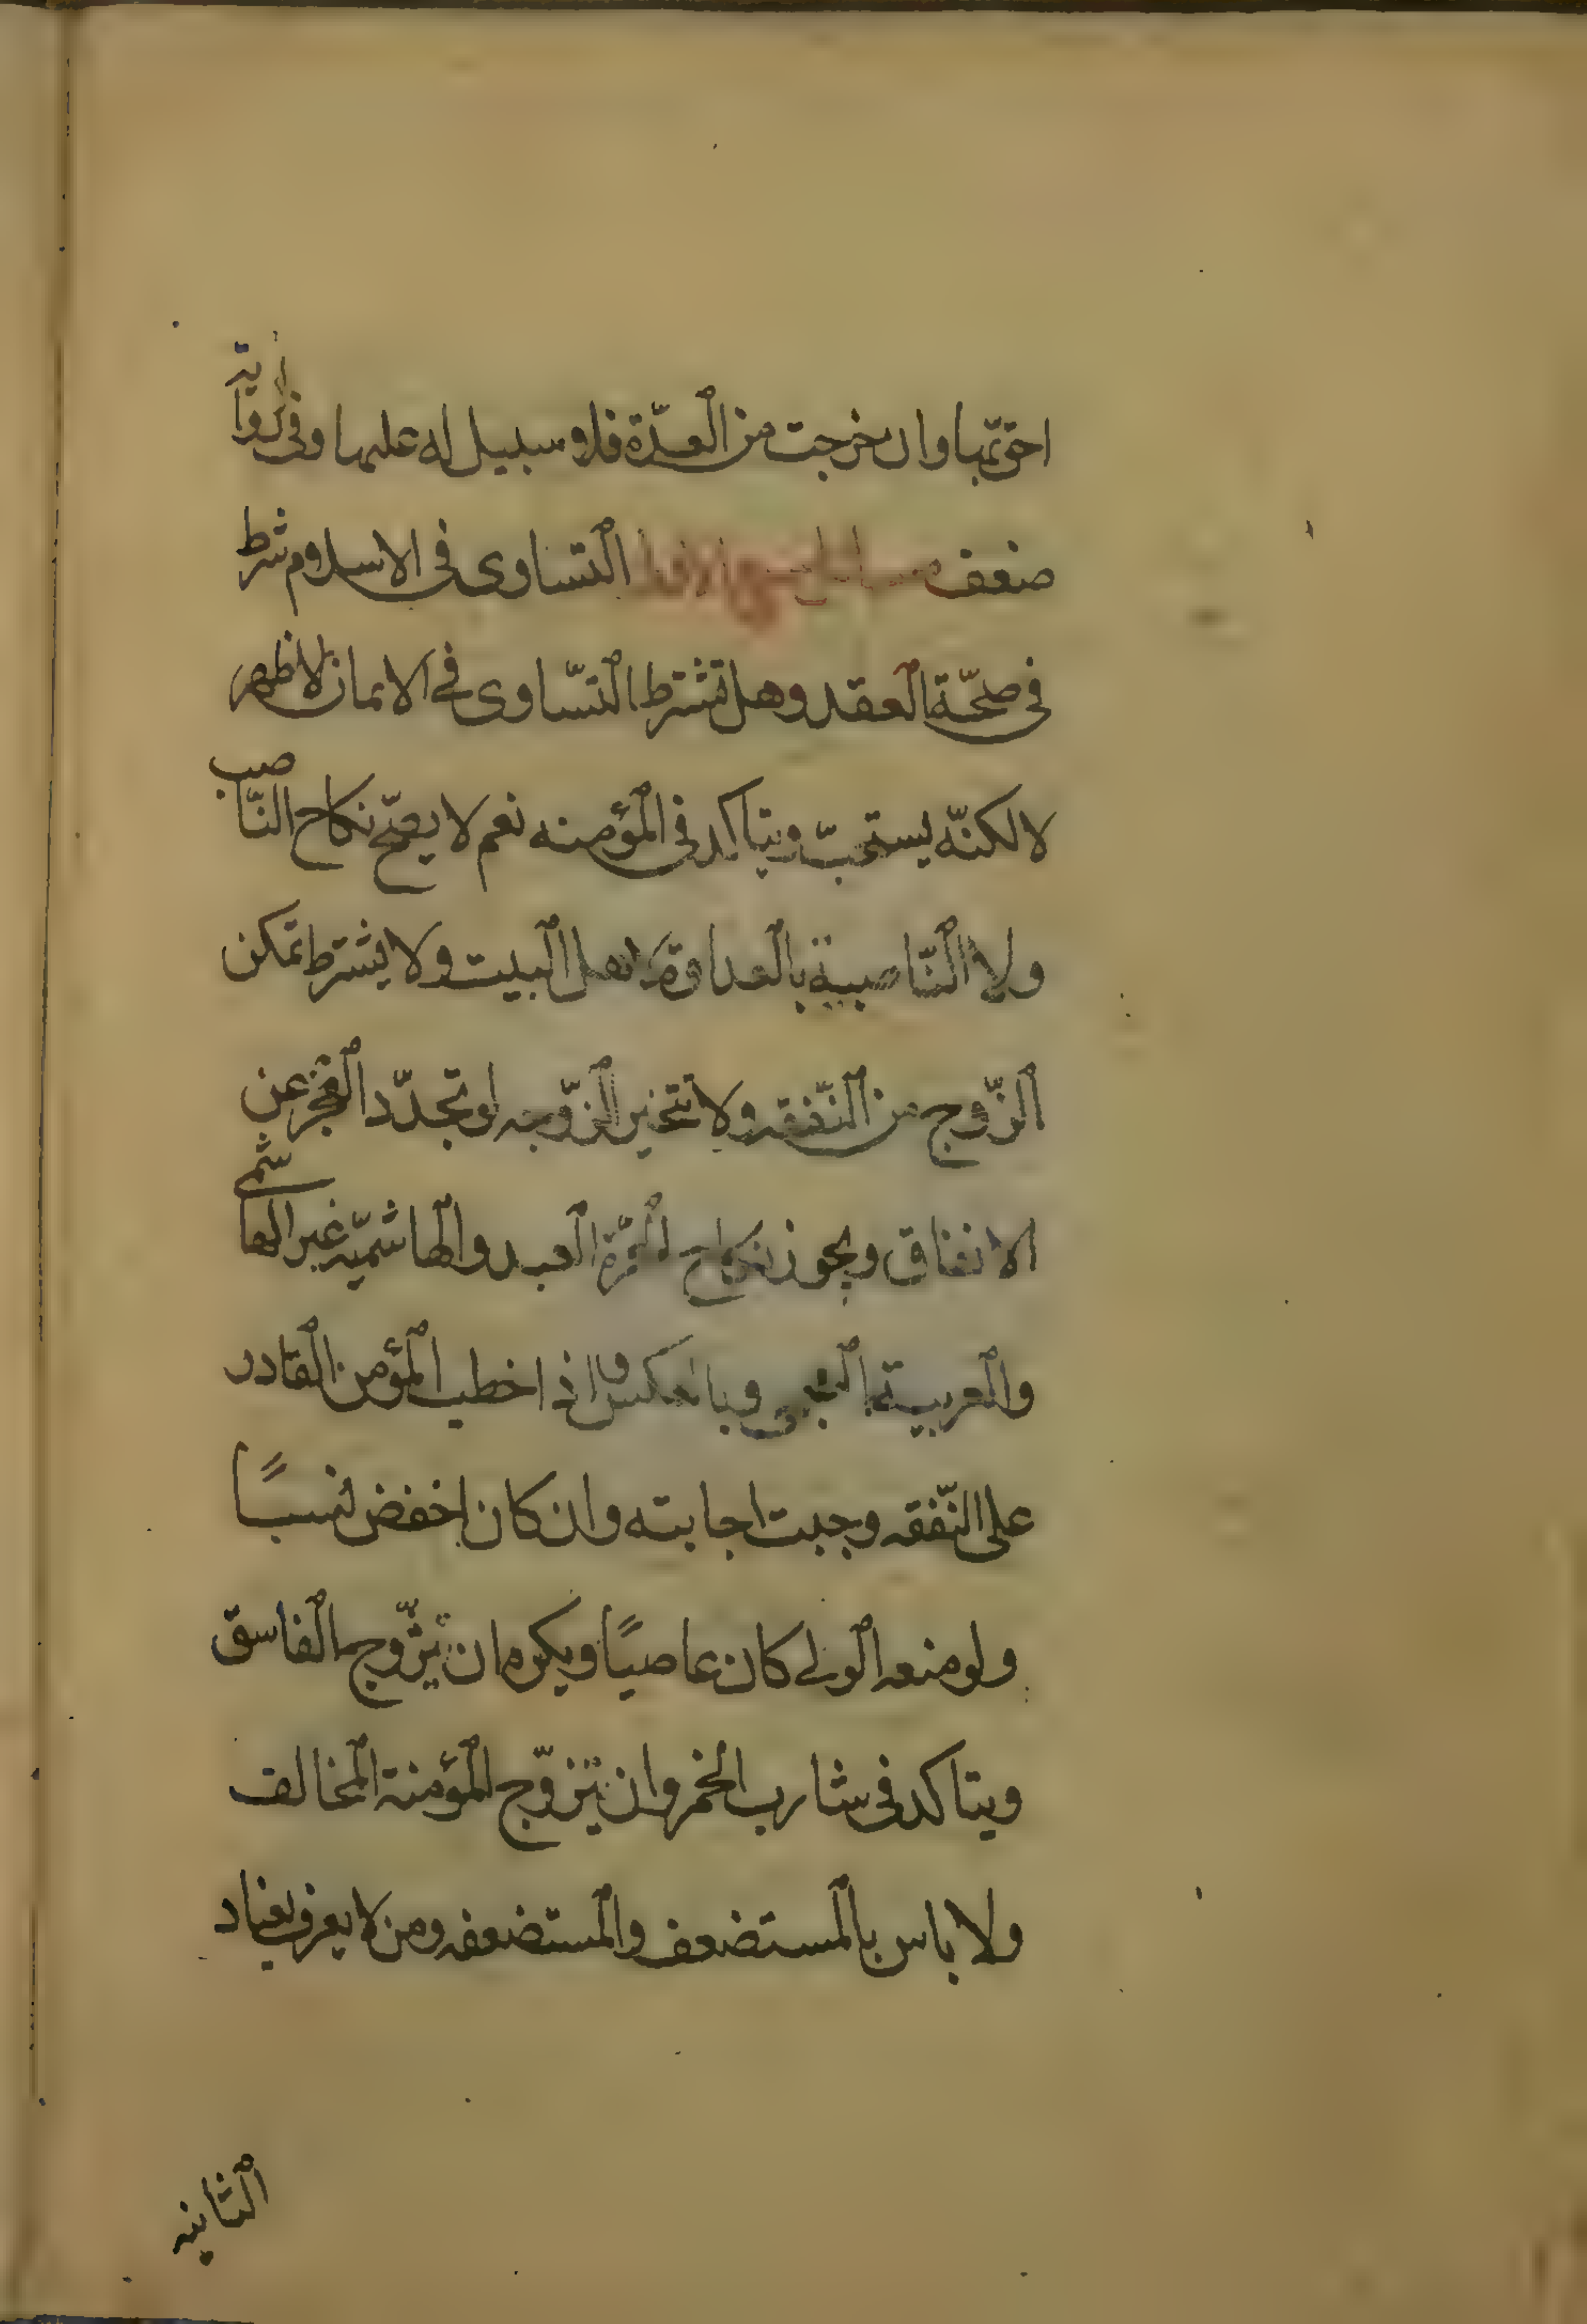 احق بها وان خرجت من العدّة فلا سبيل له عليها وفى الرواية
ضعف مسائل سبع الاولى التساوى فى الاسلام شرط
فى صحّة العقد وهل تشترط التسّاوى فى الايمان الاظهر
لا لكنّه يستحبّ ويتاكد فى المؤمنه نعم لا يصحّ نكاح النّاصب
ولا النّاصبية بالعداوة لاهل البيت ولا يشترط تمكن
الزّوج من النّفقه ولا تتخير الزّوجه لو تجدّد العجز عن
الانفاق ويجوز نكاح الحّرة العبد والهاشميّه غير الهاشمى
والعربية العجمى وبالعكس واذا خطب المؤمن القادر
على النّفقه وجبت اجابته وان كان اخفض نسباً
ولو منعه الولى كان عاصياً ويكره ان يتزّوج الفاسق
ويتاكد فى شارب الخمر وان تتزوّج المؤمنة المخالف
ولا باس بالمستضعف والمستضعفه ومن لا يعرف بعناد
الثانيه